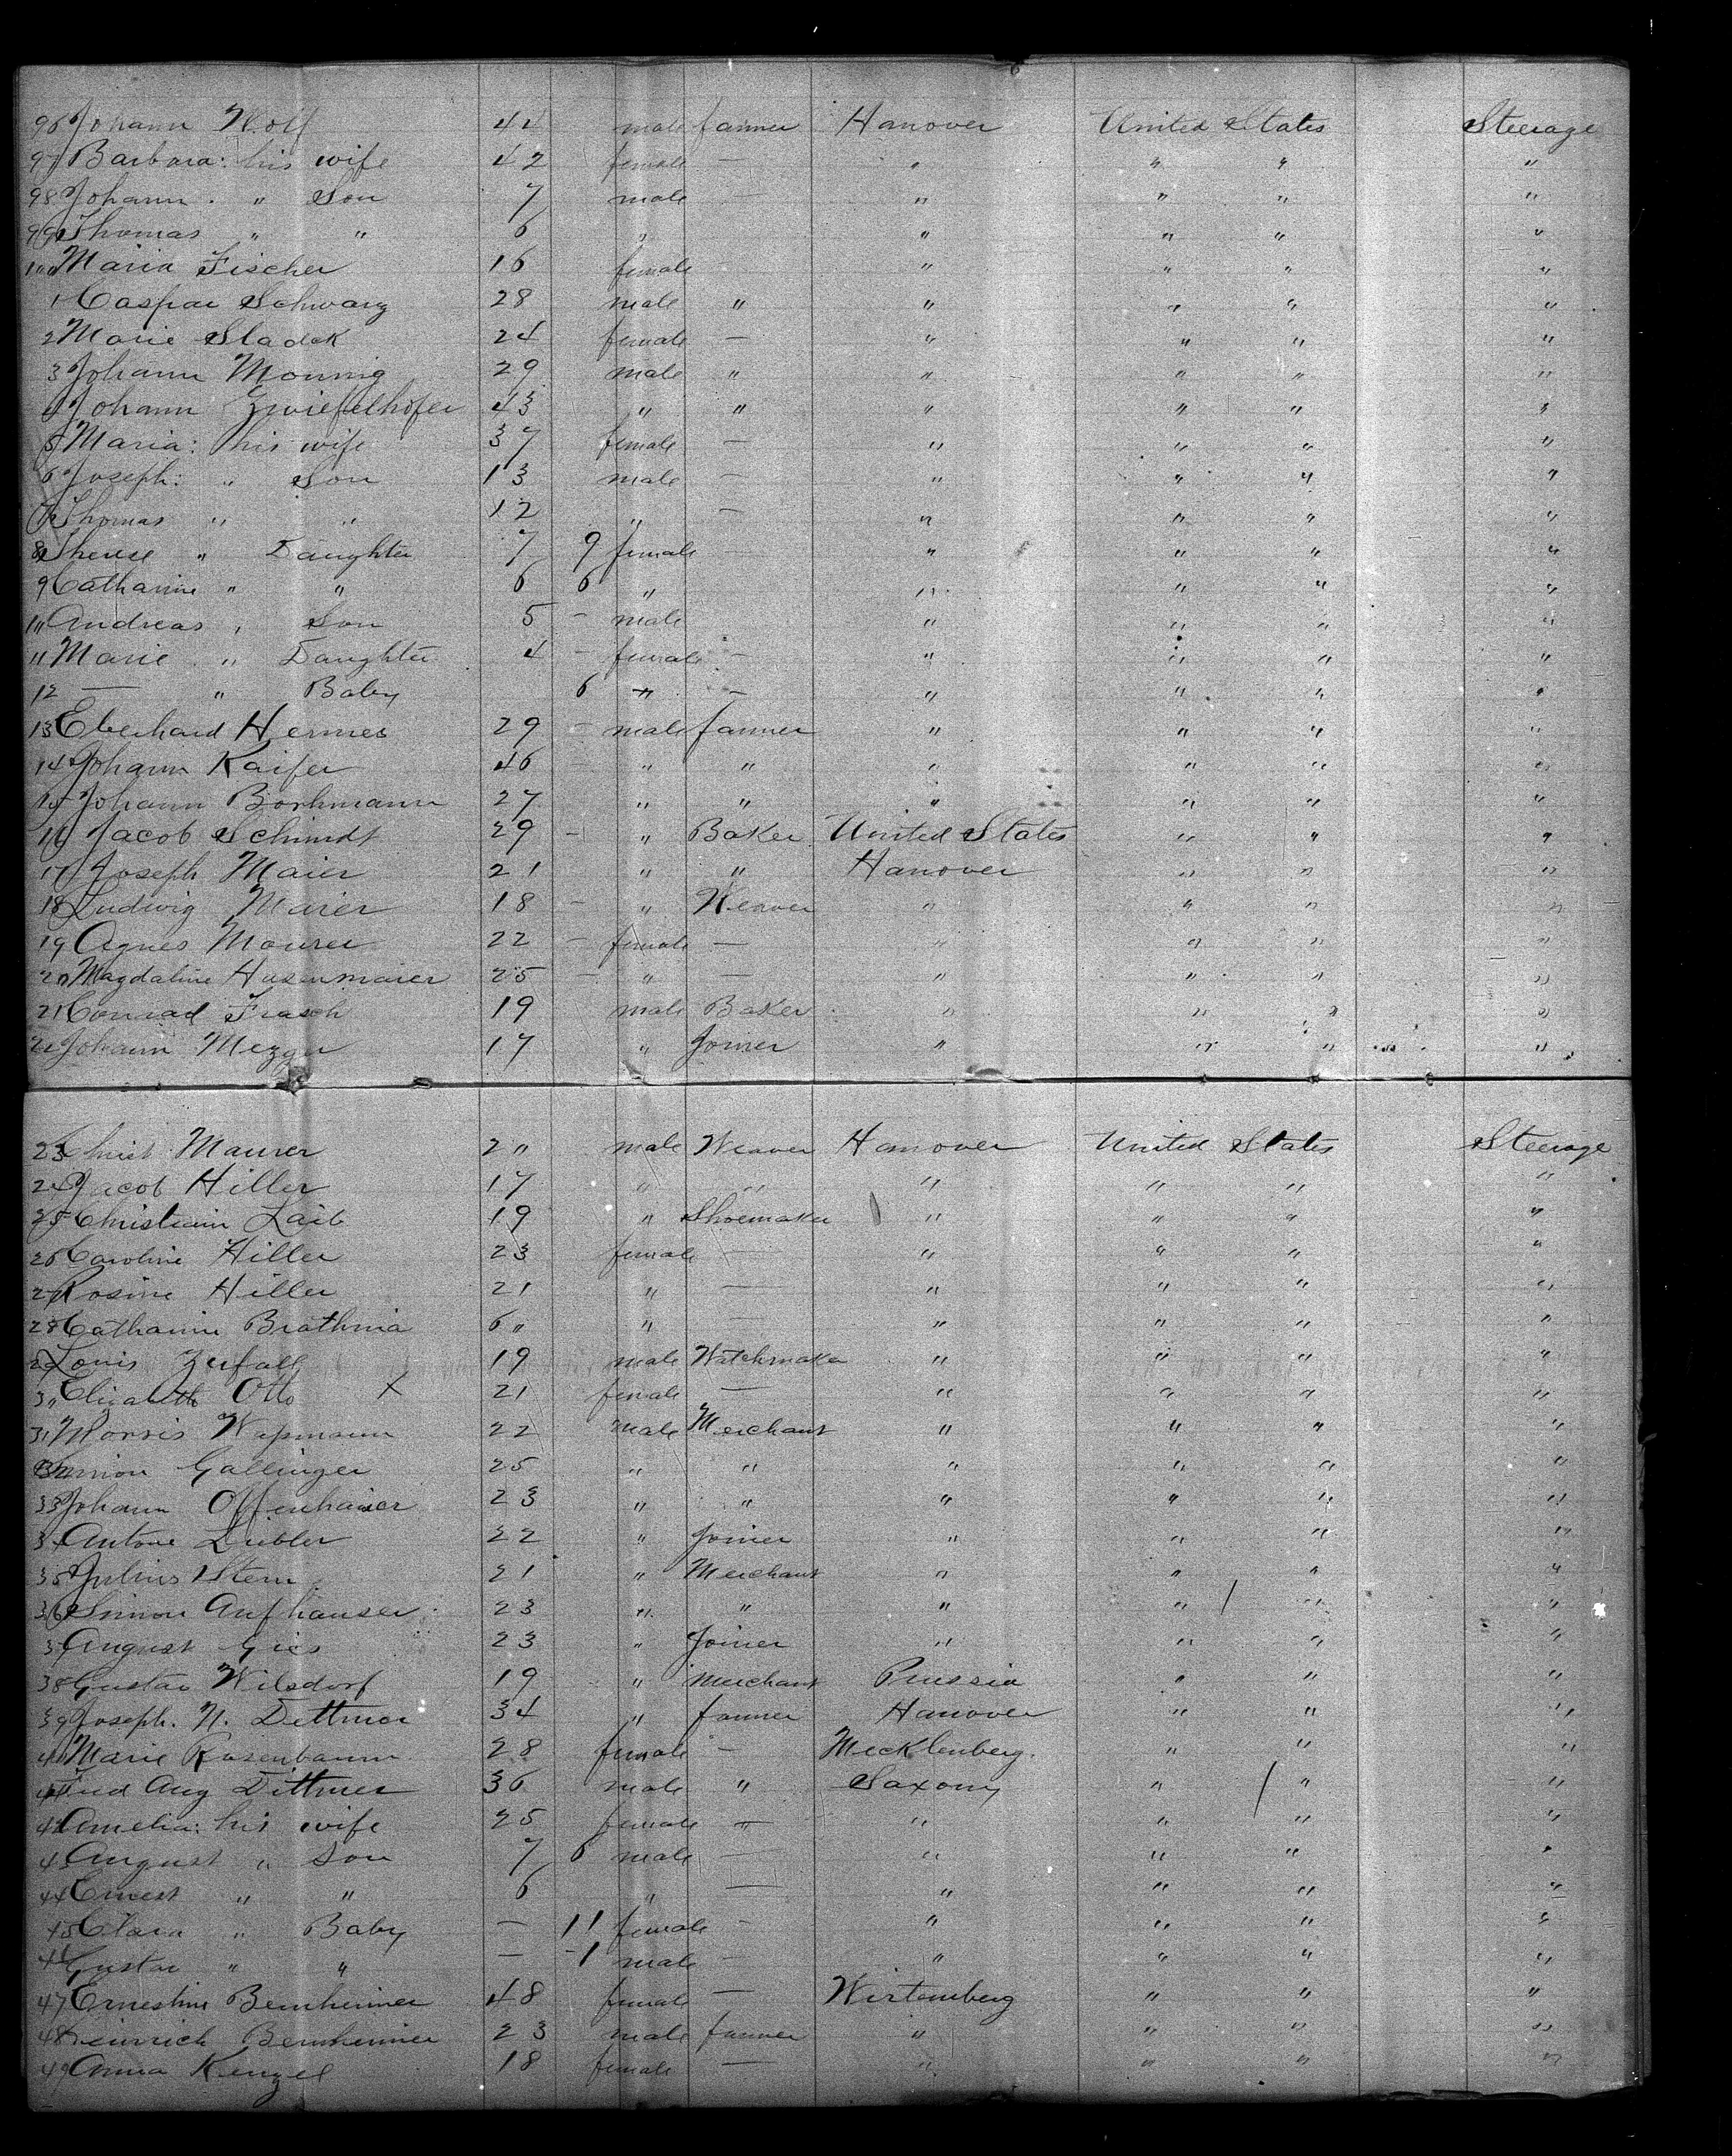 96 Johann Wolf 44 male farmer Hanover United States Steerage
97 Barbara: his wife 42 female — " " " "
98 Johann. " Son 7 male — " " " "
99 Thomas " " 6 " " " " "
100 Maria Fischer 16 female — " " " "
1 Caspar Schwarz 28 male " " " " "
2 Marie Sladek 24 female — " " " "
3 Johann Monnig 29 male " " " " "
4 Johann Zwiefelhofer 43 " " " " " "
5 Maria: his wife 37 female — " " " "
6 Joseph: " Son 13 male — " " " "
7 Thomas " " 12 " — " " " "
8 Therese " Daughter 7 9 female " " " "
9 Catharine " " 6 6 " " " " "
10 Andreas " Son 5 — male " " " "
11 Marie " Daughter 4 — female — " " " "
12 — " Baby 6 " — " " " "
13 Eberhard Hermes 29 — male farmer " " " "
14 Johann Kaifer 46 — " " " " " "
15 Johann Borhmann 27 " " " " " "
16 Jacob Schimdt 29 — " Baker United States " " "
17 Joseph Maier 21 " " Hanover " " "
18 Ludwig Maier 18 — " Weaver " " " "
19 Agnes Maurer 22 — female — " " " "
20 Magdaline Husenmaier 25 — " — " " " "
21 Conrad Frasch 19 male Baker " " " "
22 Johann Mezger 17 " Joiner " " " "
23 Christ Maurer 20 male Weaver Hanover United States Steerage
24 Jacob Hiller 17 " " " " " "
25 Christiain Laib 19 " Shoemaker " " " "
26 Caroline Hiller 23 female — " " " "
27 Rosine Hiller 21 " — " " " "
28 Catharine Brathnia 60 " — " " " "
29 Louis Zerfall 19 male Watchmaker " " " "
30 Elizabeth Otto X 21 female — " " " "
31 Morris Wapmann 22 male Merchant " " " "
32 Simon Gallinger 25 " " " " " "
33 Johann Offenhaiser 23 " " " " " "
34 Antone Liebler 22 " Joiner " " " "
35 Julius Stern 21 " Merchant " " " "
36 Simon Aufhauser 23 " " " " " "
37 August Gies 23 " Joiner " " " "
38 Gustav Wilsdorf 19 " merchant Prussia " " "
39 Joseph. N. Dettmer 34 " farmer Hanover " " "
40 Marie Rosenbaum 28 female — Mecklenberg. " " "
41 Fred Aug Dittmer 36 male " Saxony " " "
42 Amelia: his wife 25 female — " " " "
43 August " Son 7 6 male — " " " "
44 Ernest " " 6 " — " " " "
45 Clara " Baby — 11 female — " " " "
46 Gustav " " — 1 male — " " " "
47 Ernestine Bernheimer 48 female — Wirtemberg " " "
48 Heinrich Bernheimer 23 male farmer " " " "
49 Anna Kenzel 18 female — " " " "